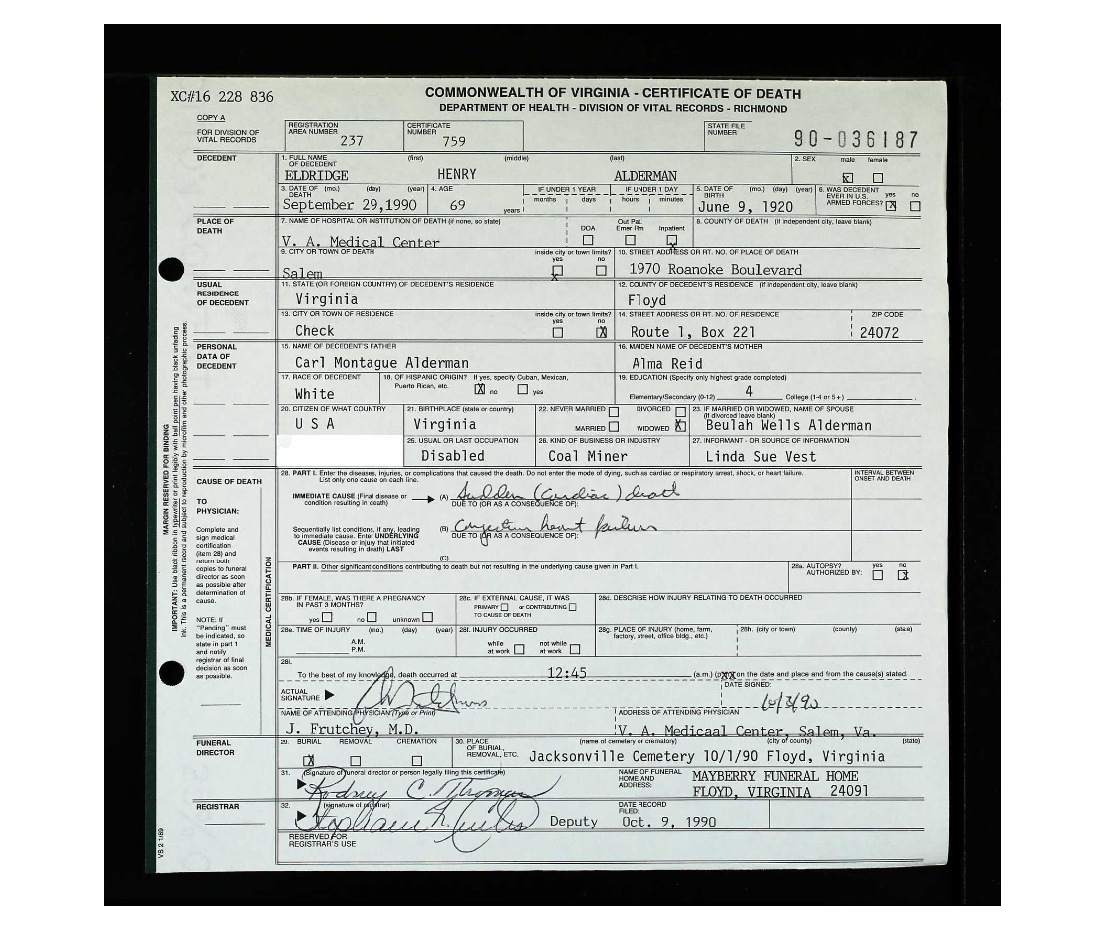 XC#16 228 836
COMMONWEALTH OF VIRGINIA - CERTIFICATE OF DEATH
DEPARTMENT OF HEALTH - DIVISION OF VITAL RECORDS - RICHMOND
COPY A
FOR DIVISION OF VITAL RECORDS
REGISTRATION AREA NUMBER 237
CERTIFICATE NUMBER 759
STATE FILE NUMBER 90-036187
DECEDENT
1. FULL NAME OF DECEDENT (first) (middle) (last)
2. SEX male female
ELDRIDGE HENRY ALDERMAN X
3. DATE OF DEATH (mo.) (day) (year) 4. AGE IF UNDER 1 YEAR IF UNDER 1 DAY 5. DATE OF BIRTH (mo.) (day) (year) 6. WAS DECEDENT EVER IN U.S. ARMED FORCES? yes no
months days hours minutes
September 29,1990 69 years June 9, 1920 X
PLACE OF DEATH
7. NAME OF HOSPITAL OR INSTITUTION OF DEATH (if none, so state) DOA Out Pat. Emer Rm Inpatient 8. COUNTY OF DEATH (if independent city, leave blank)
V. A. Medical Center X
9. CITY OR TOWN OF DEATH inside city or town limits? yes no 10. STREET ADDRESS OR RT. NO. OF PLACE OF DEATH
Salem X 1970 Roanoke Boulevard
USUAL RESIDENCE OF DECEDENT
11. STATE (OR FOREIGN COUNTRY) OF DECEDENT'S RESIDENCE 12. COUNTY OF DECEDENT'S RESIDENCE (if independent city, leave blank)
Virginia Floyd
13. CITY OR TOWN OF RESIDENCE inside city or town limits? yes no 14. STREET ADDRESS OR RT. NO. OF RESIDENCE ZIP CODE
Check X Route 1, Box 221 24072
PERSONAL DATA OF DECEDENT
15. NAME OF DECEDENT'S FATHER 16. MAIDEN NAME OF DECEDENT'S MOTHER
Carl Montague Alderman Alma Reid
17. RACE OF DECEDENT 18. OF HISPANIC ORIGIN? If yes, specify Cuban, Mexican, Puerto Rican, etc. X no yes 19. EDUCATION (Specify only highest grade completed)
White Elementary/Secondary (0-12) 4 College (1-4 or 5+)
20. CITIZEN OF WHAT COUNTRY 21. BIRTHPLACE (state or country) 22. NEVER MARRIED DIVORCED 23. IF MARRIED OR WIDOWED, NAME OF SPOUSE (If divorced leave blank)
U S A Virginia MARRIED WIDOWED X Beulah Wells Alderman
25. USUAL OR LAST OCCUPATION 26. KIND OF BUSINESS OR INDUSTRY 27. INFORMANT - OR SOURCE OF INFORMATION
Disabled Coal Miner Linda Sue Vest
CAUSE OF DEATH
28. PART I. Enter the diseases, injuries, or complications that caused the death. Do not enter the mode of dying, such as cardiac or respiratory arrest, shock, or heart failure. List only one cause on each line.
INTERVAL BETWEEN ONSET AND DEATH
TO PHYSICIAN:
Complete and sign medical certification (item 28) and return both copies to funeral director as soon as possible after determination of cause.
NOTE: If "Pending" must be indicated, so state in part 1 and notify registrar of final decision as soon as possible.
MEDICAL CERTIFICATION
IMMEDIATE CAUSE (Final disease or condition resulting in death) (A) Sudden (Cardiac) death
DUE TO (OR AS A CONSEQUENCE OF):
Sequentially list conditions, if any, leading to immediate cause. Enter UNDERLYING CAUSE (Disease or injury that initiated events resulting in death) LAST
(B) Congestive heart failure
DUE TO (OR AS A CONSEQUENCE OF):
(C)
PART II. Other significant conditions contributing to death but not resulting in the underlying cause given in Part I.
28a. AUTOPSY? AUTHORIZED BY: yes no X
28b. IF FEMALE, WAS THERE A PREGNANCY IN PAST 3 MONTHS? yes no unknown
28c. IF EXTERNAL CAUSE, IT WAS PRIMARY or CONTRIBUTING TO CAUSE OF DEATH
28d. DESCRIBE HOW INJURY RELATING TO DEATH OCCURRED
28e. TIME OF INJURY (mo.) (day) (year) A.M. P.M.
28f. INJURY OCCURRED while at work not while at work
28g. PLACE OF INJURY (home, farm, factory, street, office bldg., etc.)
28h. (city or town) (county) (state)
28i.
To the best of my knowledge, death occurred at 12:45 (a.m.) (pXX on the date and place and from the cause(s) stated.
ACTUAL SIGNATURE
DATE SIGNED: 10/3/90
NAME OF ATTENDING PHYSICIAN (Type or Print) ADDRESS OF ATTENDING PHYSICIAN
J. Frutchey, M.D. V. A. Medicaal Center, Salem, Va.
FUNERAL DIRECTOR
29. BURIAL REMOVAL CREMATION 30. PLACE OF BURIAL, REMOVAL, ETC. (name of cemetery or crematory) (city of county) (state)
X Jacksonville Cemetery 10/1/90 Floyd, Virginia
31. (signature of funeral director or person legally filing this certificate) NAME OF FUNERAL HOME AND ADDRESS:
Rodney C. Thomas
MAYBERRY FUNERAL HOME
FLOYD, VIRGINIA 24091
REGISTRAR
32. (signature of registrar) DATE RECORD FILED:
Deputy Oct. 9, 1990
RESERVED FOR REGISTRAR'S USE
VS 2 1/89
MARGIN RESERVED FOR BINDING
IMPORTANT: Use black ribbon in typewriter or print legibly with ball point pen having black unfading ink. This is a permanent record and subject to reproduction by microfilm and other photographic process.